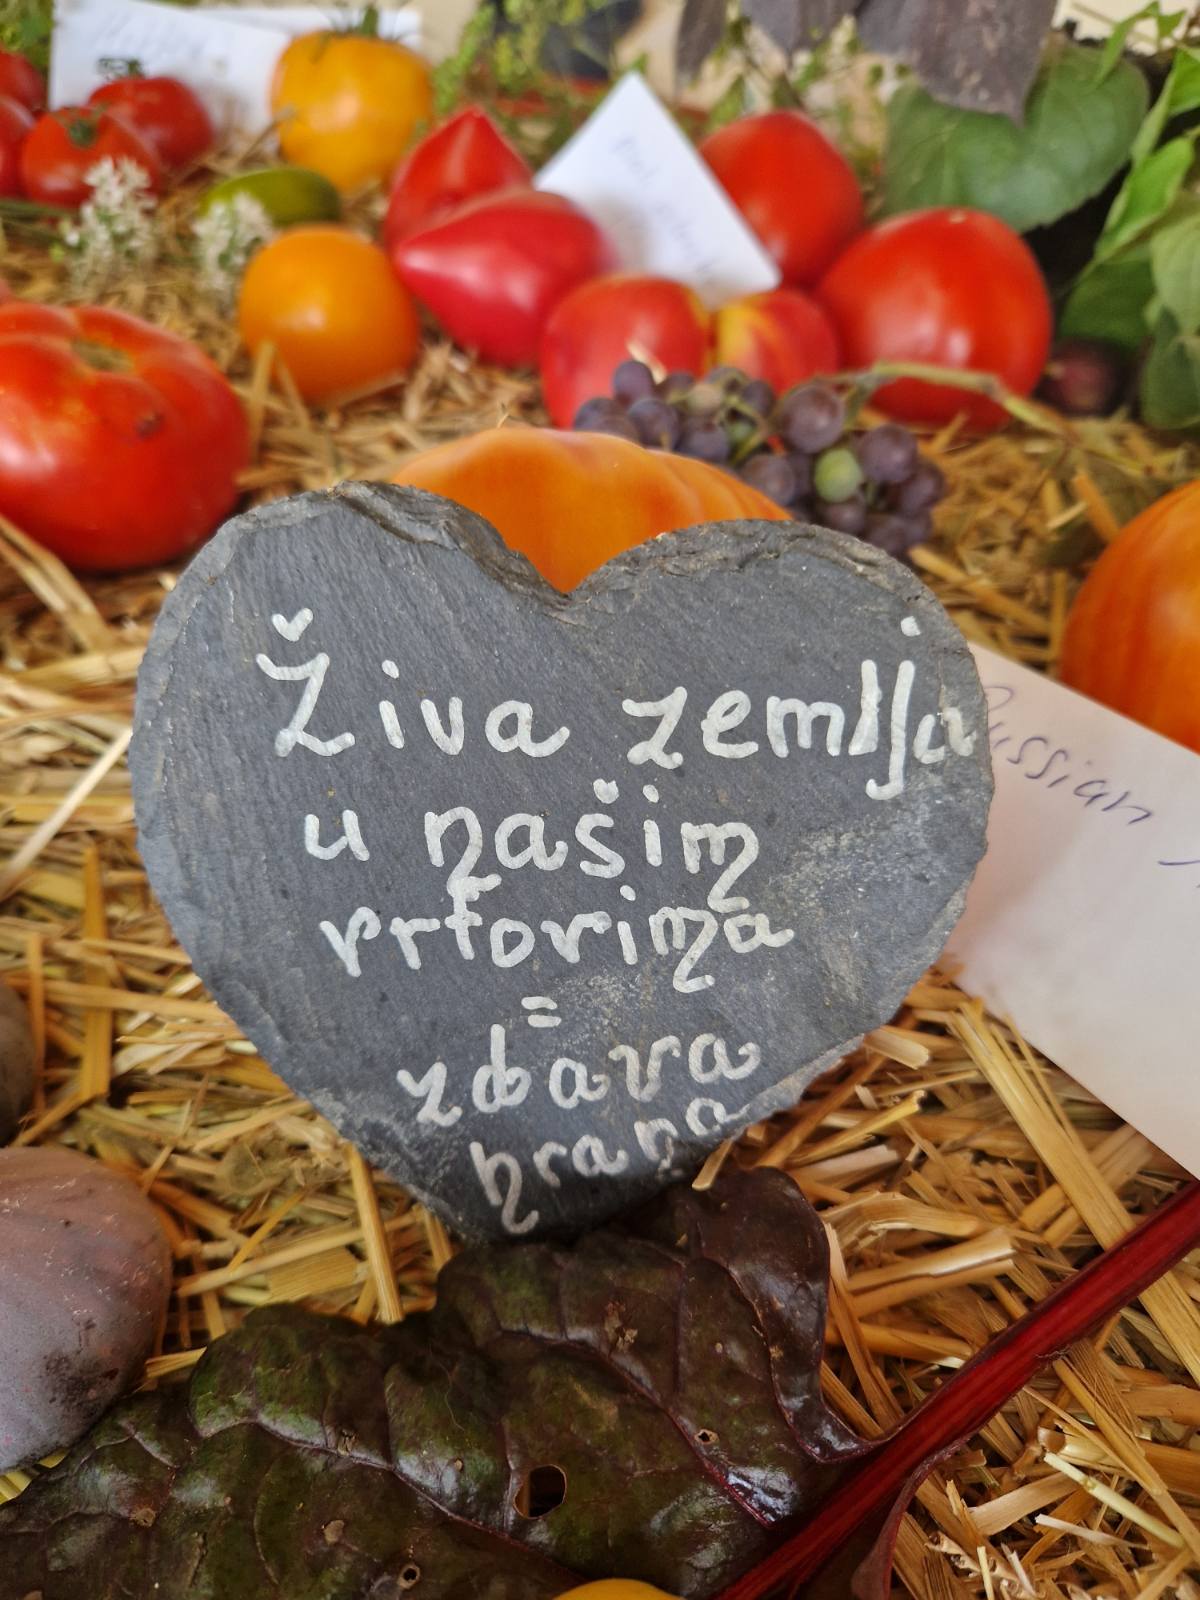 Russian
Živa zemlja
u našim
vrtovima
=
zdrava
hrana